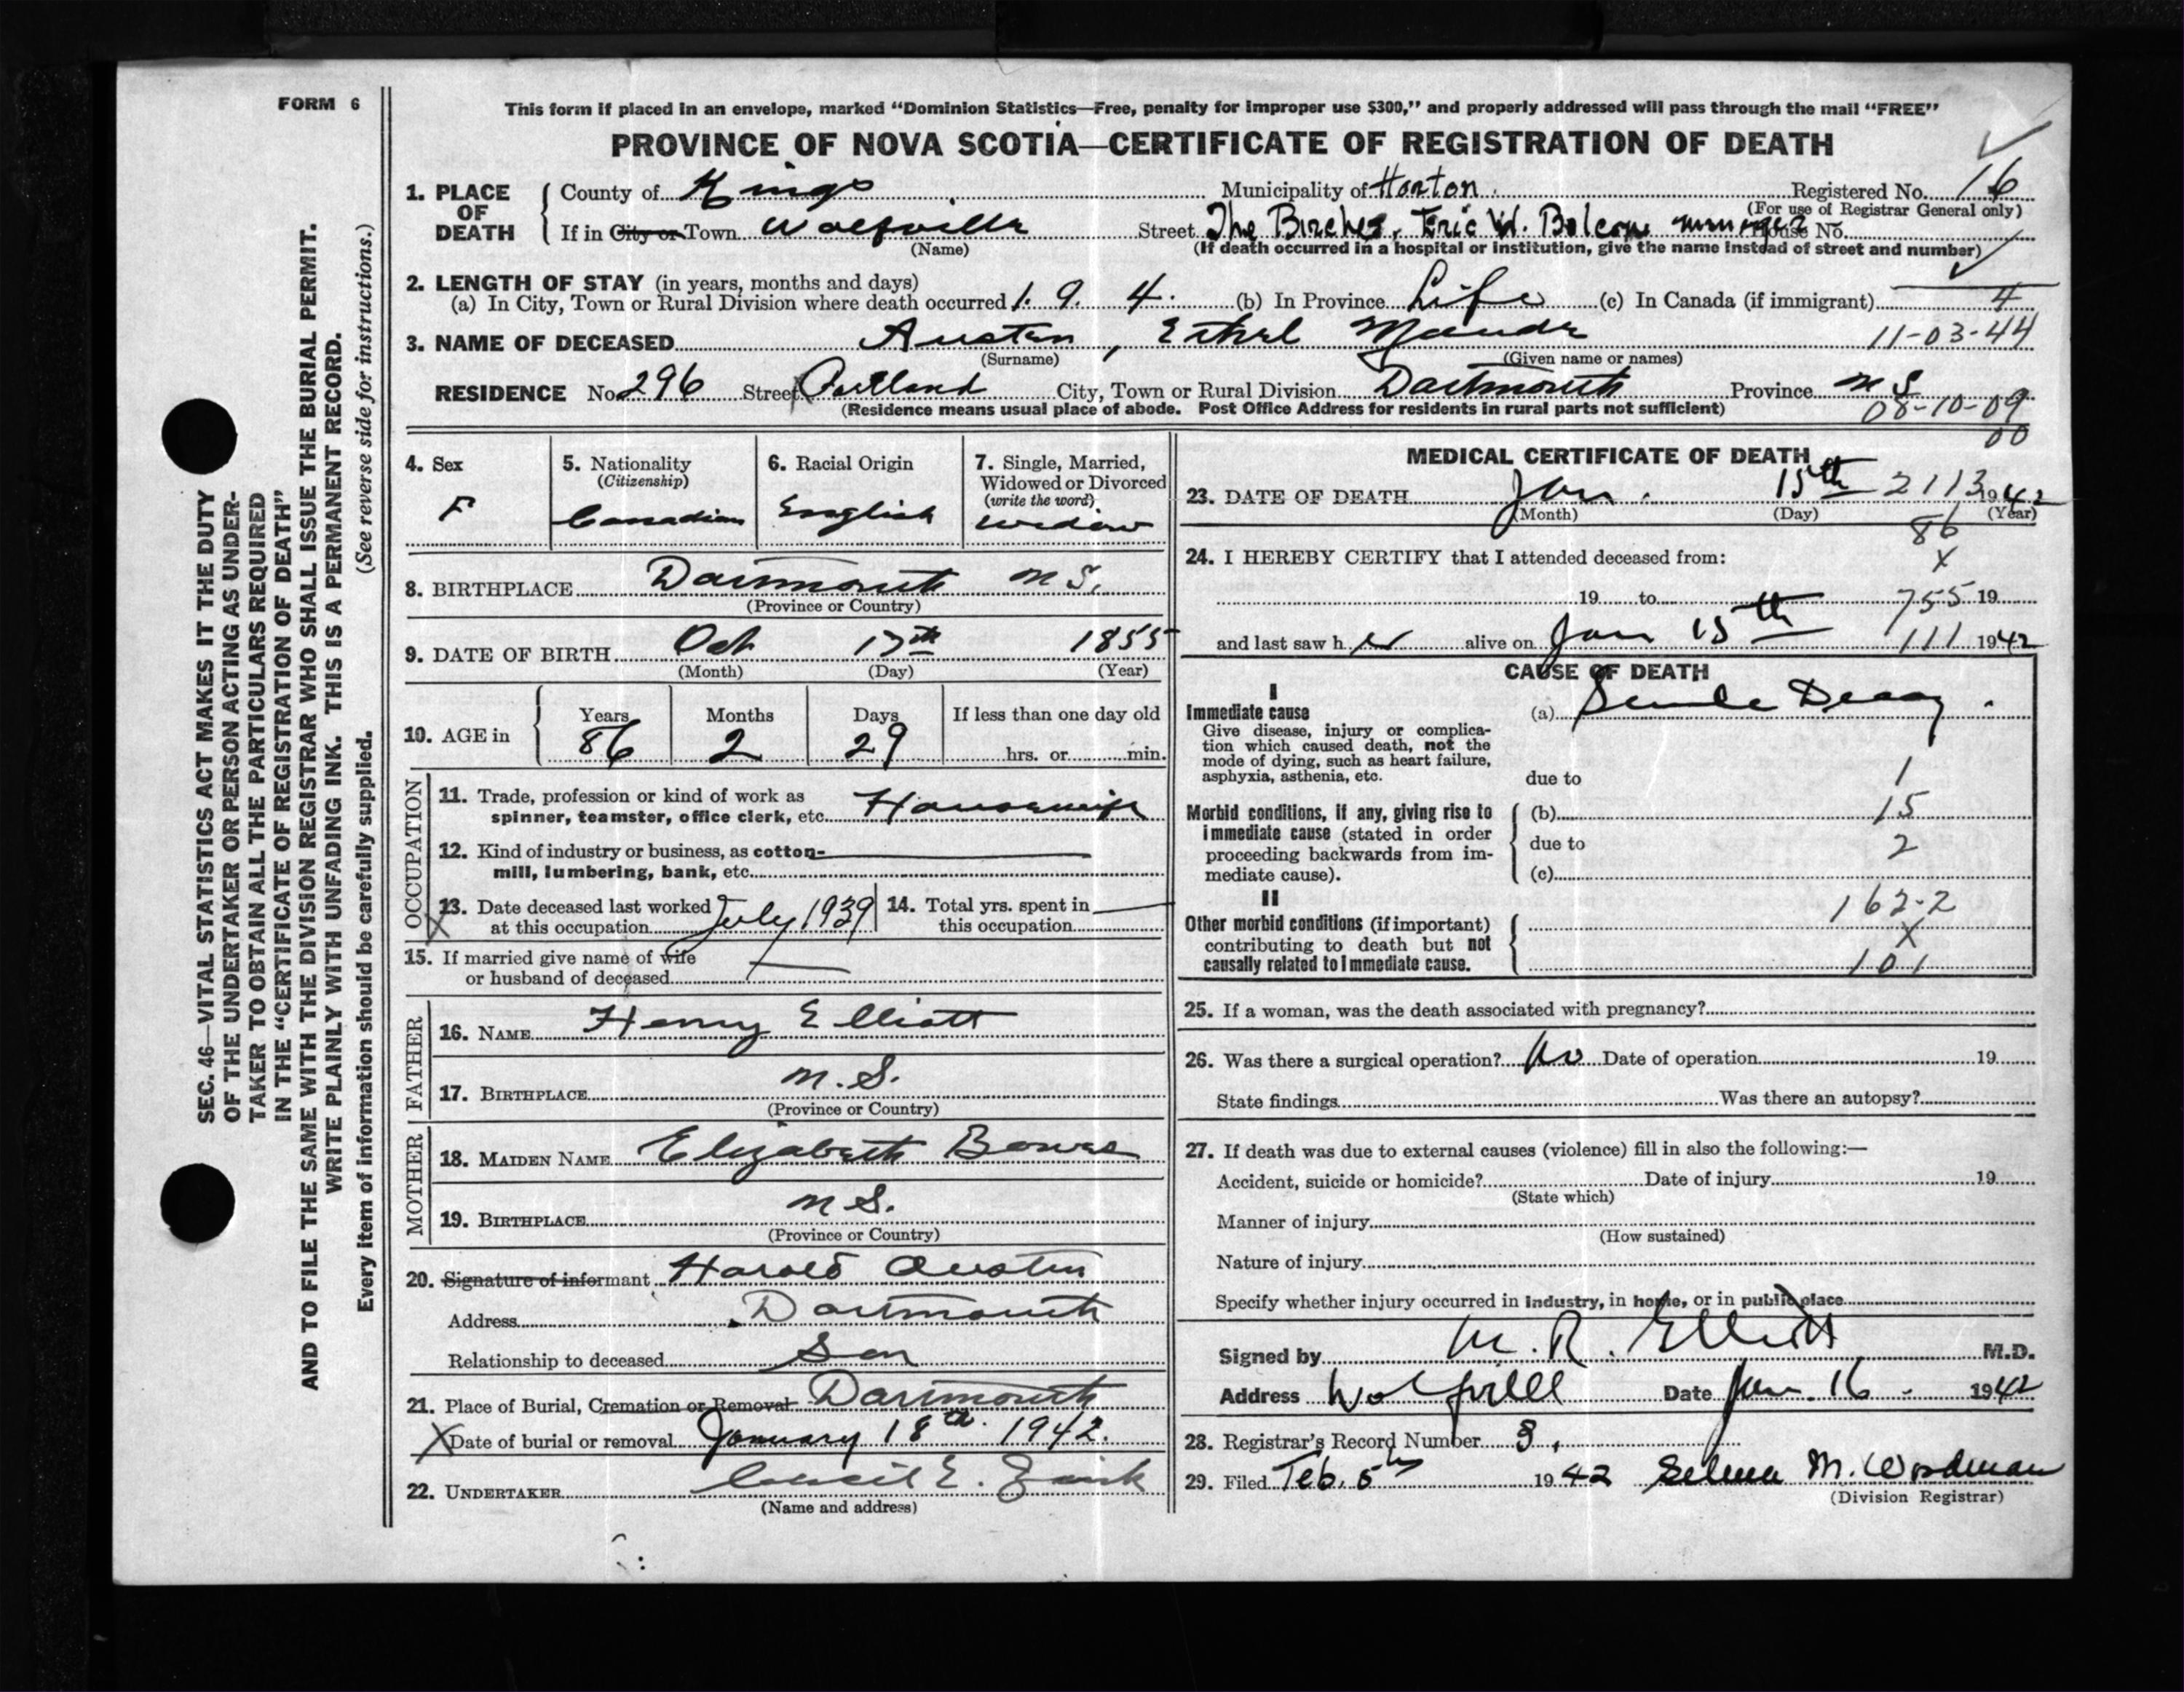 FORM 6
This form if placed in an envelope, marked “Dominion Statistics—Free, penalty for improper use $300,” and properly addressed will pass through the mail “FREE”
PROVINCE OF NOVA SCOTIA—CERTIFICATE OF REGISTRATION OF DEATH
1. PLACE OF DEATH County of Kings Municipality of Horton Registered No. 16
(For use of Registrar General only)
If in City or Town Wolfville Street The Birches, Eric W. Balcom manager House No.
(Name) (If death occurred in a hospital or institution, give the name instead of street and number)
2. LENGTH OF STAY (in years, months and days)
(a) In City, Town or Rural Division where death occurred 1. 9. 4. (b) In Province Life (c) In Canada (if immigrant) 4
3. NAME OF DECEASED Austen, Ethel Maude 11-03-44
(Surname) (Given name or names)
RESIDENCE No. 296 Street Portland City, Town or Rural Division Dartmouth Province N S
(Residence means usual place of abode. Post Office Address for residents in rural parts not sufficient) 08-10-09
00
4. Sex
F
5. Nationality
(Citizenship)
Canadian
6. Racial Origin
English
7. Single, Married,
Widowed or Divorced
(write the word)
widow
8. BIRTHPLACE Dartmouth N S.
(Province or Country)
9. DATE OF BIRTH Oct 17th 1855
(Month) (Day) (Year)
10. AGE in
Years Months Days If less than one day old
86 2 29 hrs. or min.
OCCUPATION
11. Trade, profession or kind of work as
spinner, teamster, office clerk, etc. Housewife
12. Kind of industry or business, as cotton-
mill, lumbering, bank, etc.
13. Date deceased last worked
at this occupation July 1939
14. Total yrs. spent in
this occupation
15. If married give name of wife
or husband of deceased
FATHER
16. NAME Henry Elliott
17. BIRTHPLACE N.S.
(Province or Country)
MOTHER
18. MAIDEN NAME Elizabeth Bowes
19. BIRTHPLACE N S.
(Province or Country)
20. Signature of informant Harold Austen
Address Dartmouth
Relationship to deceased Son
21. Place of Burial, Cremation or Removal Dartmouth
X Date of burial or removal January 18th. 1942.
22. UNDERTAKER E. Zink
(Name and address)
MEDICAL CERTIFICATE OF DEATH
23. DATE OF DEATH Jan. 15th 2113 1942
(Month) (Day) (Year)
86
24. I HEREBY CERTIFY that I attended deceased from:
X
19 to 755 19
and last saw her alive on Jan 15th 111 1942
CAUSE OF DEATH
I
Immediate cause
Give disease, injury or complica-
tion which caused death, not the
mode of dying, such as heart failure,
asphyxia, asthenia, etc.
(a) Senile Decay.
due to 1
Morbid conditions, if any, giving rise to
immediate cause (stated in order
proceeding backwards from im-
mediate cause).
(b) 15
due to 2
(c)
II
Other morbid conditions (if important)
contributing to death but not
causally related to immediate cause.
162-2
X
101
25. If a woman, was the death associated with pregnancy?
26. Was there a surgical operation? No Date of operation 19
State findings Was there an autopsy?
27. If death was due to external causes (violence) fill in also the following:—
Accident, suicide or homicide? Date of injury 19
(State which)
Manner of injury
(How sustained)
Nature of injury
Specify whether injury occurred in industry, in home, or in public place
Signed by M. R. Elliott M.D.
Address Wolfville Date Jan. 16. 1942
28. Registrar's Record Number 3.
29. Filed Feb. 5th 1942 Selma M. Woodman
(Division Registrar)
SEC. 46—VITAL STATISTICS ACT MAKES IT THE DUTY
OF THE UNDERTAKER OR PERSON ACTING AS UNDER-
TAKER TO OBTAIN ALL THE PARTICULARS REQUIRED
IN THE “CERTIFICATE OF REGISTRATION OF DEATH”
AND TO FILE THE SAME WITH THE DIVISION REGISTRAR WHO SHALL ISSUE THE BURIAL PERMIT.
WRITE PLAINLY WITH UNFADING INK. THIS IS A PERMANENT RECORD.
Every item of information should be carefully supplied. (See reverse side for instructions.)